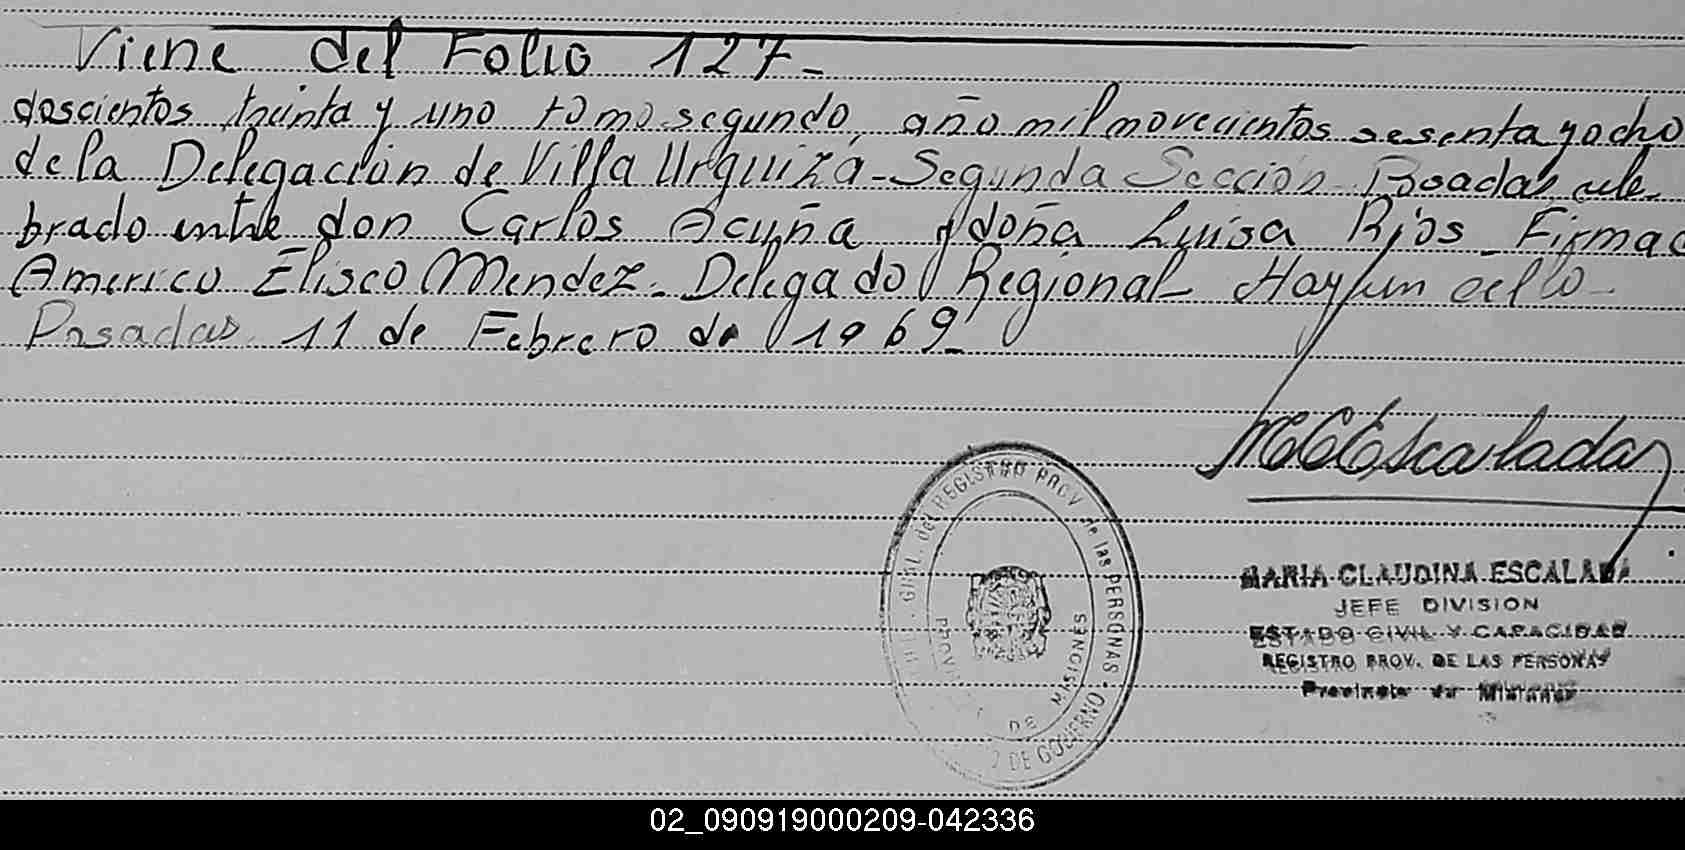 Viene del Folio 127-
doscientos treinta y uno tomo segundo, año mil novecientos sesenta y ocho
de la Delegación de Villa Urquiza-Segunda Sección Posadas, cele-
brado entre don Carlos Acuña y doña Luisa Ríos. Firmado
Americo Eliseo Mendez. Delegado Regional Hay un sello-
Posadas. 11 de Febrero de 1969-
MCEscalada
GRAL. del REGISTRO PROV de las PERSONAS - DE GOBIERNO
PROVINCIA DE MISIONES
MARIA CLAUDINA ESCALADA
JEFE DIVISION
ESTADO CIVIL Y CAPACIDAD
REGISTRO PROV. DE LAS PERSONAS
Provincia de Misiones
02_090919000209-042336